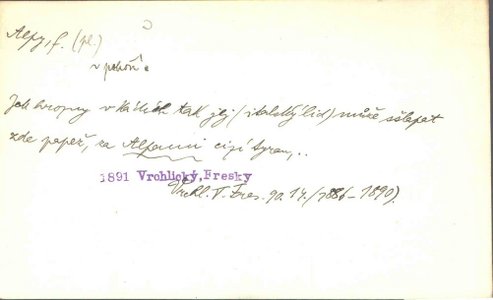 Alpy, f. (pl.)
v pohoří.
Jak hrozny v kádích tak jej (italský lid) může sšlapat
zde papež, za Alpami cizí tyran,..
1891 Vrchlický, Fresky
Vrchl. V. Fres. 90. 14. (1886–1890).